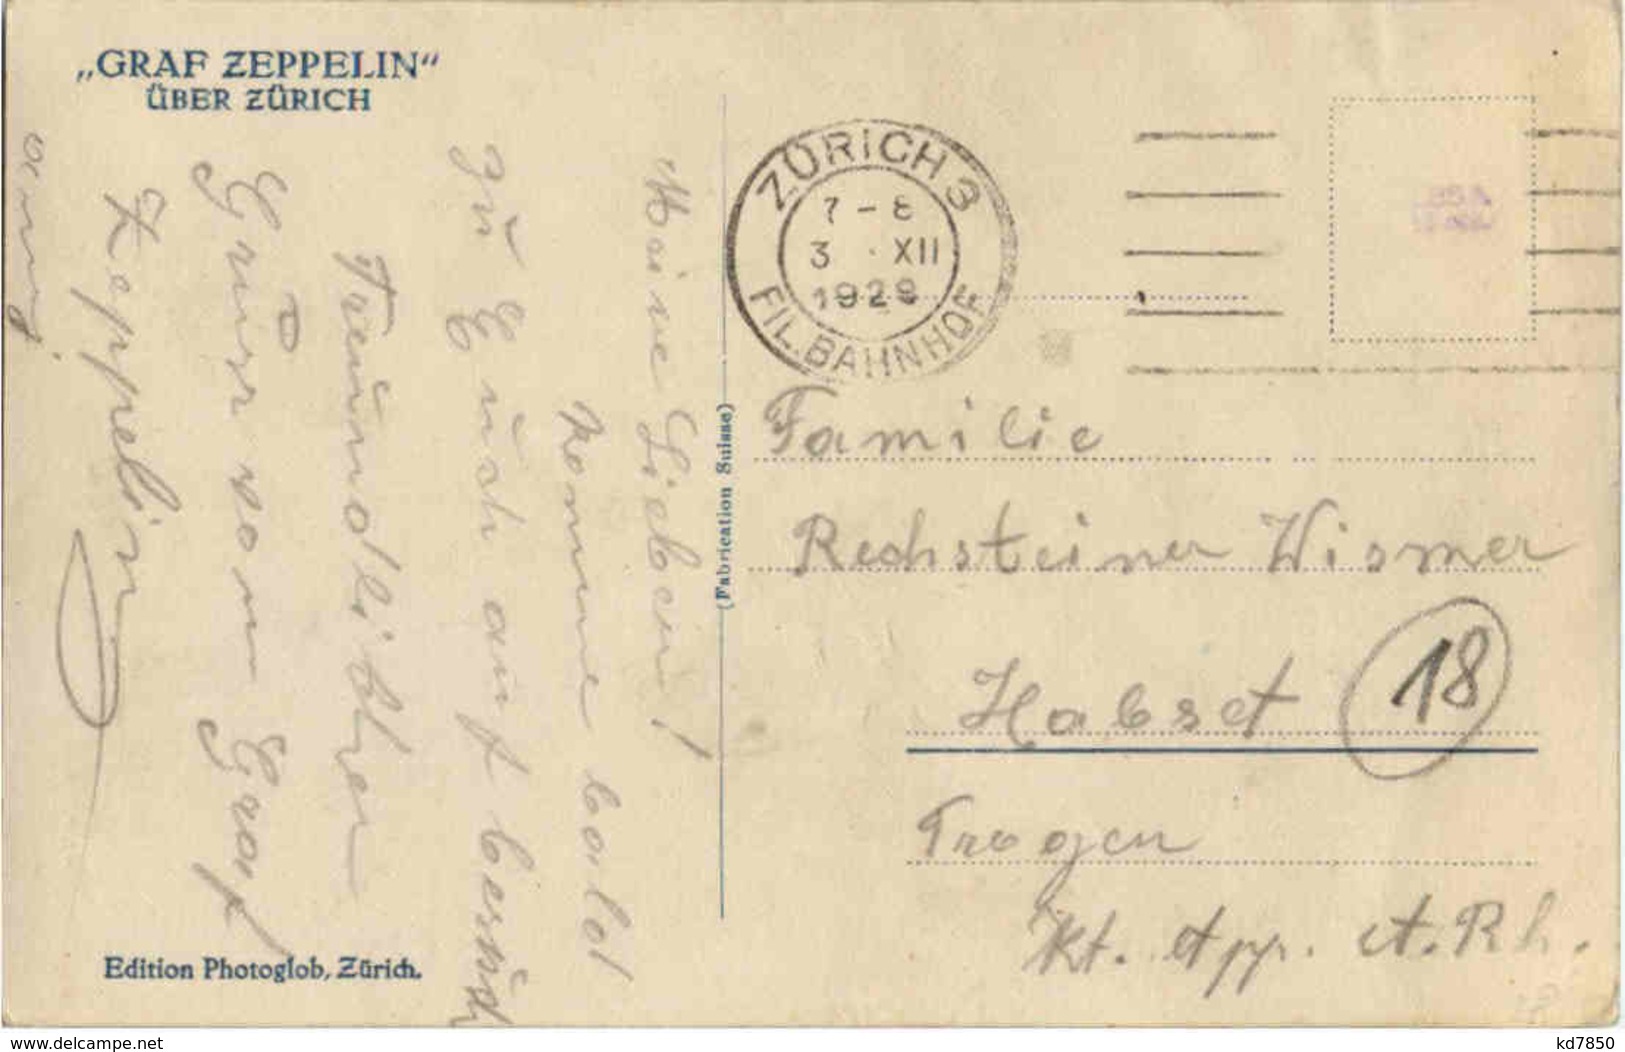 „GRAF ZEPPELIN“
ÜBER ZÜRICH
Meine Lieben!
Komme bald
zu Euch auf besuch
Freundlichen
Gruss vom Graf
Zeppelin
ZÜRICH 3
7-8
3 . XII
1929
FIL. BAHNHOF
(Fabrication Suisse)
Familie
Rechsteiner Wismer
Habset
18
Trogen
Kt. App. A. Rh.
Edition Photoglob, Zürich.
www.delcampe.net
kd7850